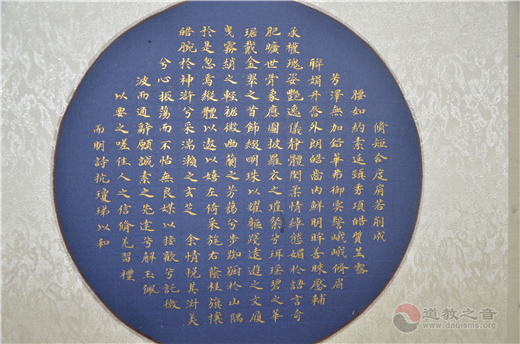 脩短合度肩若削成
腰如約素延頸秀項皓質呈露
芳澤無加鉛華弗御雲髻峨峨脩眉
聯娟丹脣外朗皓齒內鮮明眸善睞靨輔
承權瑰姿艷逸儀靜體閑柔情綽態媚於語言奇
服曠世骨象應圖披羅衣之璀粲兮珥瑤碧之華
琚戴金翠之首飾綴明珠以耀軀踐遠遊之文履
曳霧綃之輕裾微幽蘭之芳藹兮步踟躕於山隅
於是忽焉縱體以遨以嬉左倚采旄右蔭桂旗攘
皓腕於神滸兮采湍瀨之玄芝 余情悅其淑美
兮心振蕩而不怡無良媒以接歡兮託微
波而通辭願誠素之先達兮解玉佩
以要之嗟佳人之信脩羌習禮
而明詩抗瓊珶以和
道教之音
www.daoisms.org